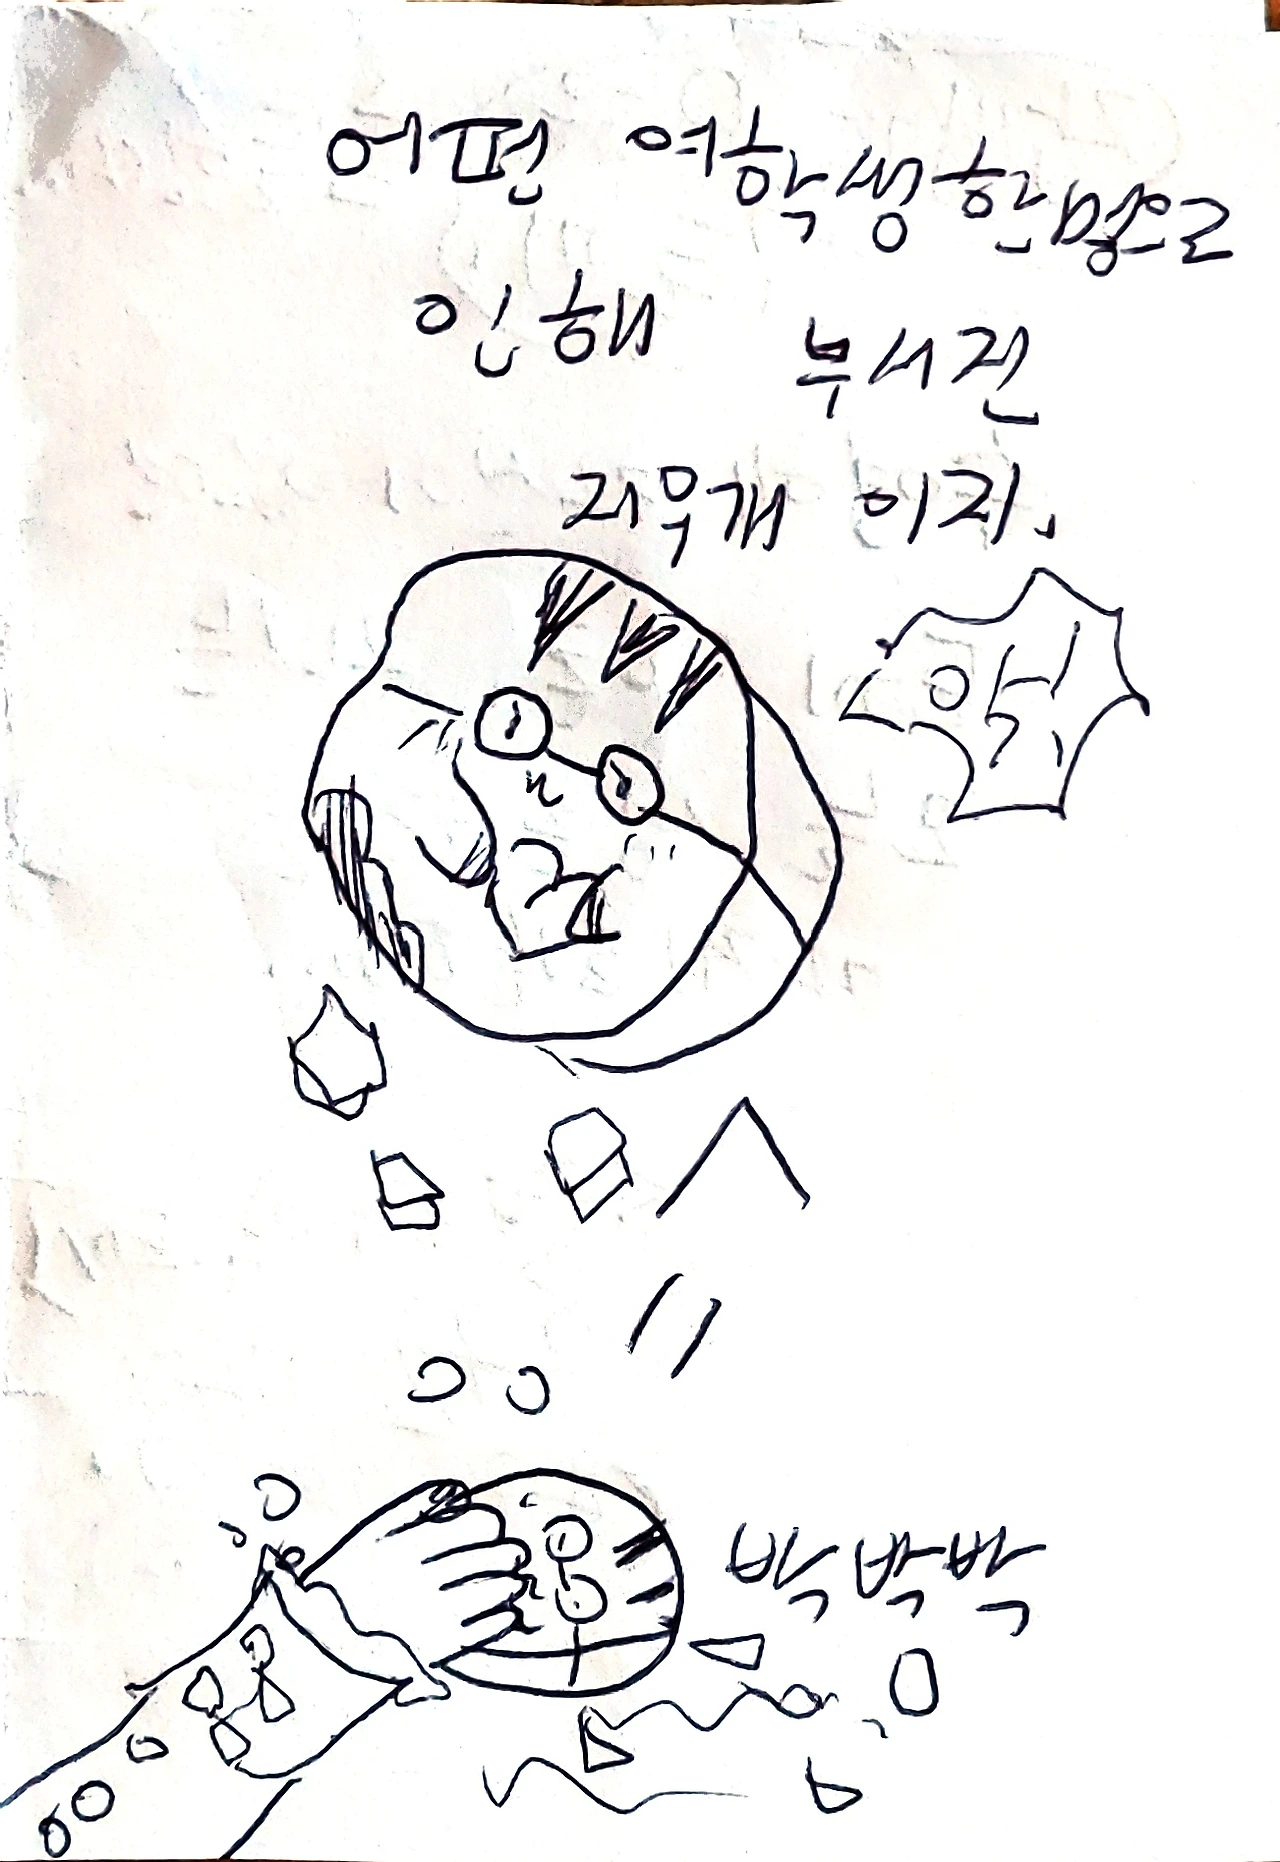 어떤 여학생한명으로
인해 부서진
지우개 이지.
악
박박박